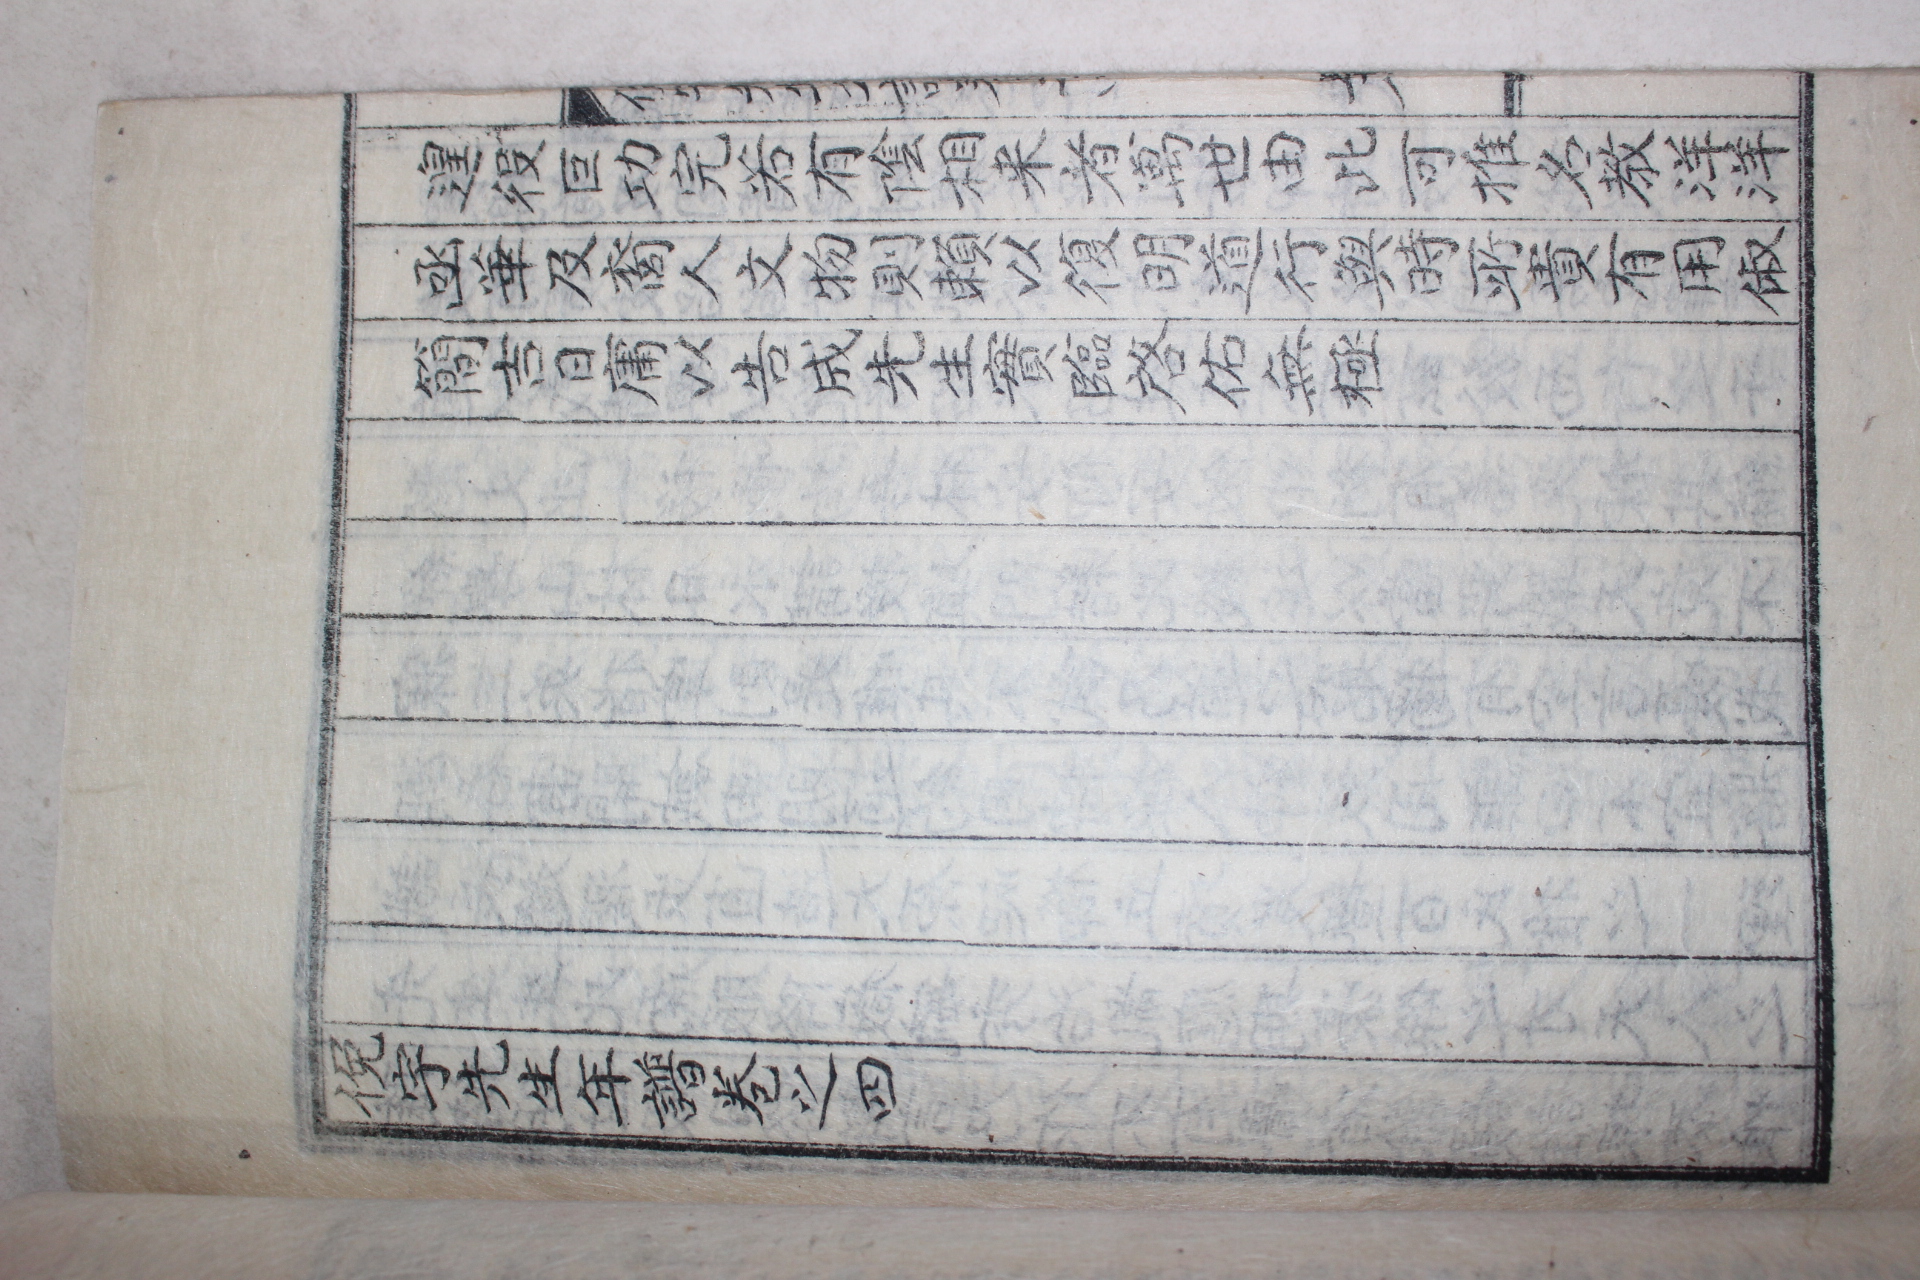 遑役巨功完若有陰相来者萬世由此可推名教洋洋
亟華及裔人文物則頼以復明道行與時所貴有用俶
簡吉日庸以告成先生實臨啓佑無極
俛宇先生年譜卷之四